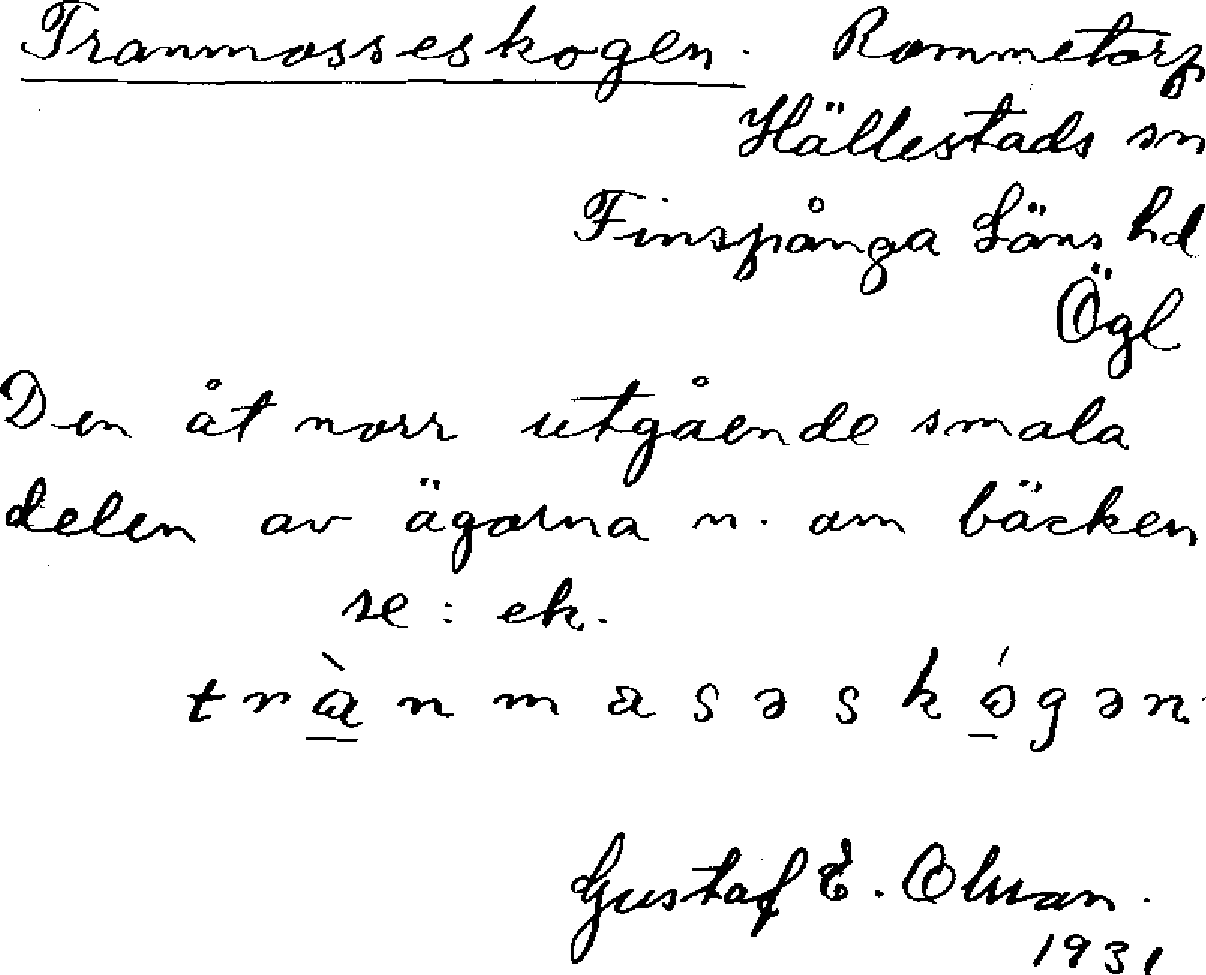 Tranmosseskogen. Rommetorp
Hällestads sn
Finspånga Läns hd
Ögl
Den åt norr utgående smala
delen av ägorna n. om bäcken
se: ek.
trànmasəskógən.
Gustaf E. Olsson.
1931